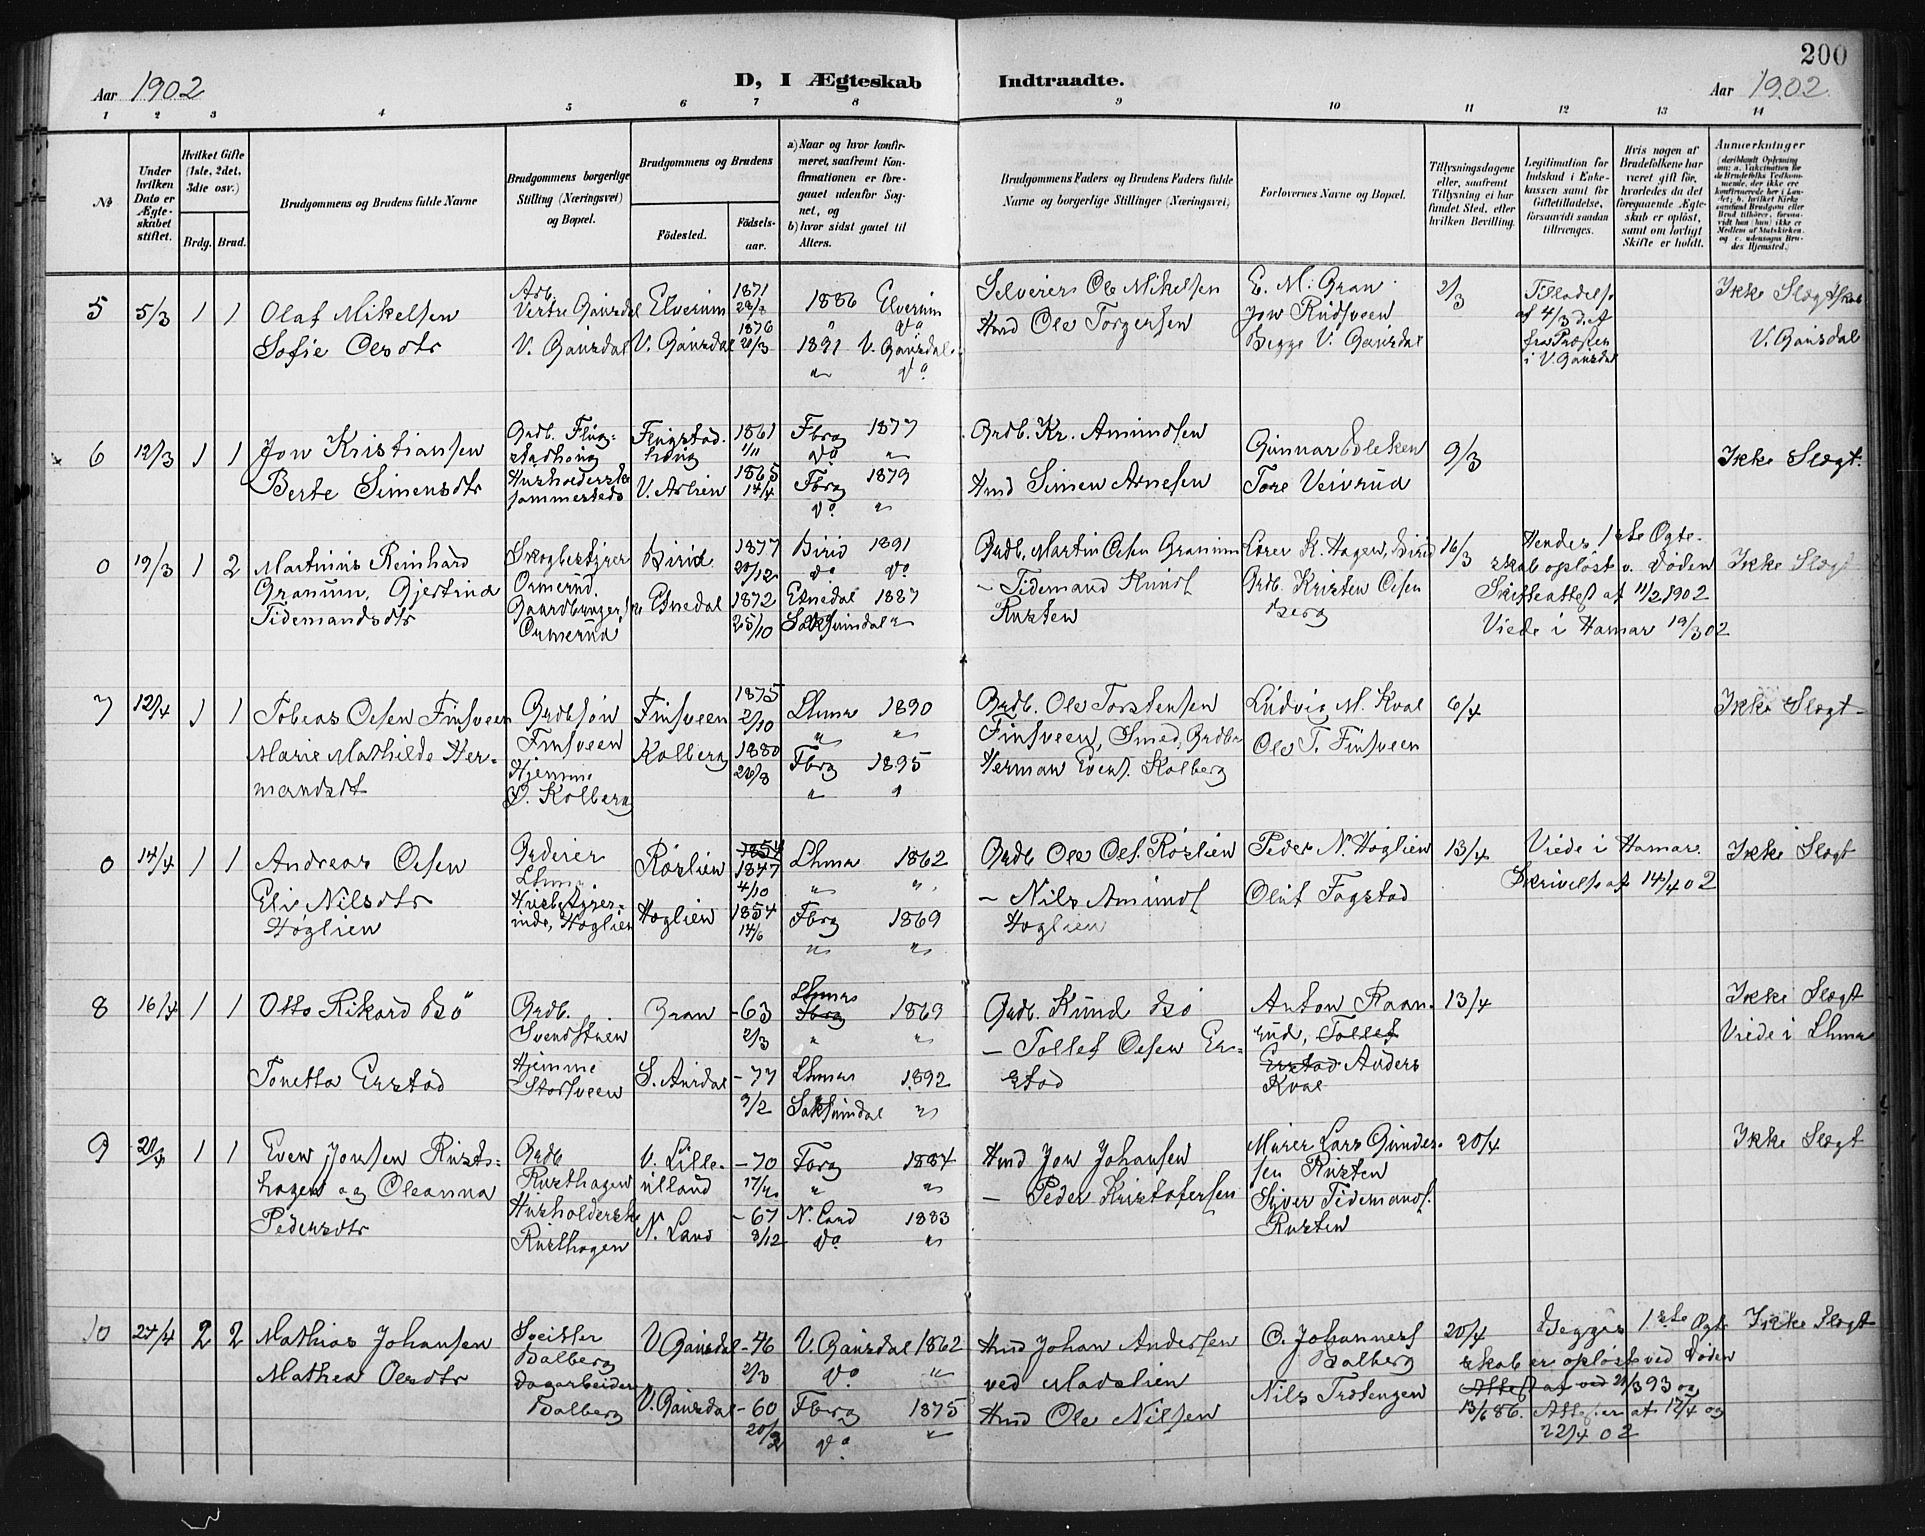 200
Aar 1902
D, I Ægteskab Indtraadte.
Aar 1902
1 2 3 4 5 6 7 8 9 10 11 12 13 14
No
Under hvilken Dato er Ægteskabet stiftet.
Hvilket Gifte (1ste, 2det, 3die osv.)
Brdg. Brud.
Brudgommens og Brudens fulde Navne
Brudgommens borgerlige Stilling (Næringsvei) og Bopæl.
Brudgommens og Brudens
Fødested.
Fødselsaar.
a) Naar og hvor konfirmeret, saafremt Konfirmationen er foregaaet udenfor Sognet, og
b) hvor sidst gaaet til Alters.
Brudgommens Faders og Brudens Faders fulde Navne og borgerlige Stillinger (Næringsvei)
Forlovernes Navne og Bopæl.
Tillysningsdagene eller, saafremt Tillysning ei har fundet Sted, efter hvilken Bevilling.
Legitimation for Indskud i Enkekassen samt for Giftetilladelse, forsaavidt saadan tiltrænges.
Hvis nogen af Brudefolkene har været gift før, hvorledes da det foregaaende Ægteskab er opløst, samt om lovligt Skifte er holdt.
Anmerkninger
5 5/3 1 1
Olaf Mikelsen
Sofie Olsdtr
Arb. Vestre Gausdal
V. Gausdal
Elverum
V. Gausdal
1871
1876
20/3
1886 Elverum
" do
1891 V. Gausdal
" do
Selveier Ole Mikelsen
Hmd Ole Torgersen
E. M. Gran
Jon Rudsveen
Begge V. Gausdal
2/3
Tilladelse
af 4/3 d.A
fra Præsten
i V. Gausdal
Ikke Slægtskab
V. Gausdal
6 12/3 1 1
Jon Kristiansen
Berte Simensdtr
Grdb. Flugstadhaug
Husholderske
sammesteds
Flugstadhaug
V. Aslien
1861
1/11
1865
14/4
Fbrg 1877
do "
Fbrg 1879
do "
Grdb. Kr. Amundsen
Hmd Simen Arnesen
Gunnar Boleken
Tore Veivrud
9/3
Ikke Slægt.
0 19/3 1 2
Martinus Reinhard
Granum, Gjertine
Tidemandsdtr
Skogbestyrer
Ormerud.
Gaardbruger
Ormerud
Birid
Etnedal
1877
20/12
1872
25/10
Birid 1891
do do
Etnedal 1887
"
Grdb. Martin Olsen Granum
- Tidemand Knuds
Rusten
Lærer K. Hagen, Birid
Grdb. Kristen Olsen
Berg
16/3
Hendes 1ste Ægteskab opløst v. Døden
Skifteattest af 11/2 1902
Viede i Hamar 19/3 02
Ikke Slægt
7 12/4 1 1
Tobias Olsen Finsveen
Marie Mathilde Hermandsdt
Grdbsøn
Finsveen
Hjemme
Ø. Kolberg
Finsveen
Kolberg
1875
2/10
1880
26/3
Lhmr 1890
" "
Fbrg 1895
" "
Grdb. Ole Torstensen
Finsveen, Smed, Grdbr
Herman Evens. Kolberg
Ludvig M. Kval
Ole T. Finsveen
6/4
Ikke Slægt
0 14/4 1 1
Andreas Olsen
Eli Nilsdtr
Høglien
Grdeier
Lhmr
Husbestyrerinde, Høglien
Røslien
Høglien
1854
1847
4/10
1854
14/6
Lhmr 1862
" "
Fbrg 1869
" "
Grdb Ole Ols. Røslien
- Nils Amunds
Høglien
Peder N. Høglien
Oluf Fagstad
13/4
Viede i Hamar.
Skrivelse af 14/4 02
Ikke Slægt
8 16/4 1 1
Otto Rikard Bø
Tonetta Erstad
Grdb.
Svendstuen
Hjemme
Storsveen
Gran
S. Aurdal
- 63
2/3
- 77
9/2
Lhmr
Fbrg 1869
" "
Lhmr 1892
"
Grdb. Knud Bø
- Tollef Olsen Erstad
Anton Raanrud, Tollef
Erstad Anders
Kval
13/4
Ikke Slægt
Viede i Lhmr
9 20/4 1 1
Even Jonsen Rusthagen og Oleanna
Pedersdtr
Grdb
Rusthagen
Husholderske
Rusthagen
V. Lilleulland
N. Land
- 70
- 67
9/12
Fbrg 1884
" "
N. Land 1883
do "
Hmd Jon Johansen
- Peder Kristofersen
Murer Lars Gundersen Rusten
Syver Tidemands.
Rusten
20/4
Ikke Slægt
10 24/4 2 2
Mathias Johansen
Mathea Olesdtr
Dalberg
Dagarbeider
Dalberg
V. Gausdal
V. Gausdal
- 46
2/3
- 60
V. Gausdal 1862
do "
Fbrg 1875
do "
Hmd Johan Andersen
ved Madslien
Hmd Ole Nilsen
O. Johannes
Dalberg
Nils Trøtengen
20/4
Begges 1ste Ægteskab er opløst ved Døden
Attest af ved 21/3 93 og
13/6 86. Attester af 17/4 og
22/4 02
Ikke Slægt